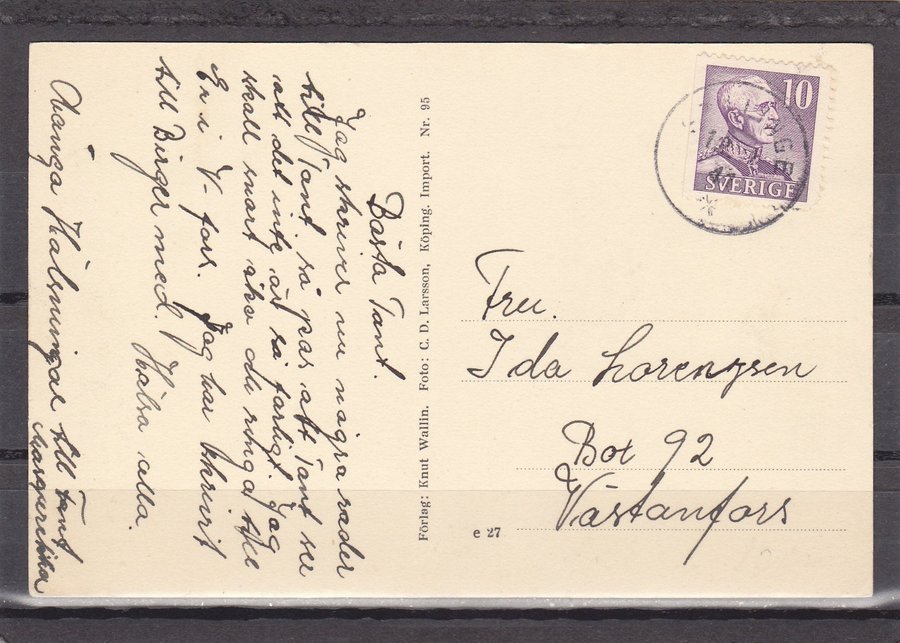 Bästa Tant.
Jag skriver nu några rader
till Tant. så pas att Tant ser
att det inte är så farligt. Jag
skall snart åka du ringa till
Er i V-fors. Jag har skrivit
till Birger med. Hälsa alla.
Många Hälsningar till Tant
Förlag: Knut Wallin. Foto: C. D. Larsson, Köping. Import. Nr. 95
e 27
10
SVERIGE
Fru.
Ida Lorenzsen
Box 92
Västanfors